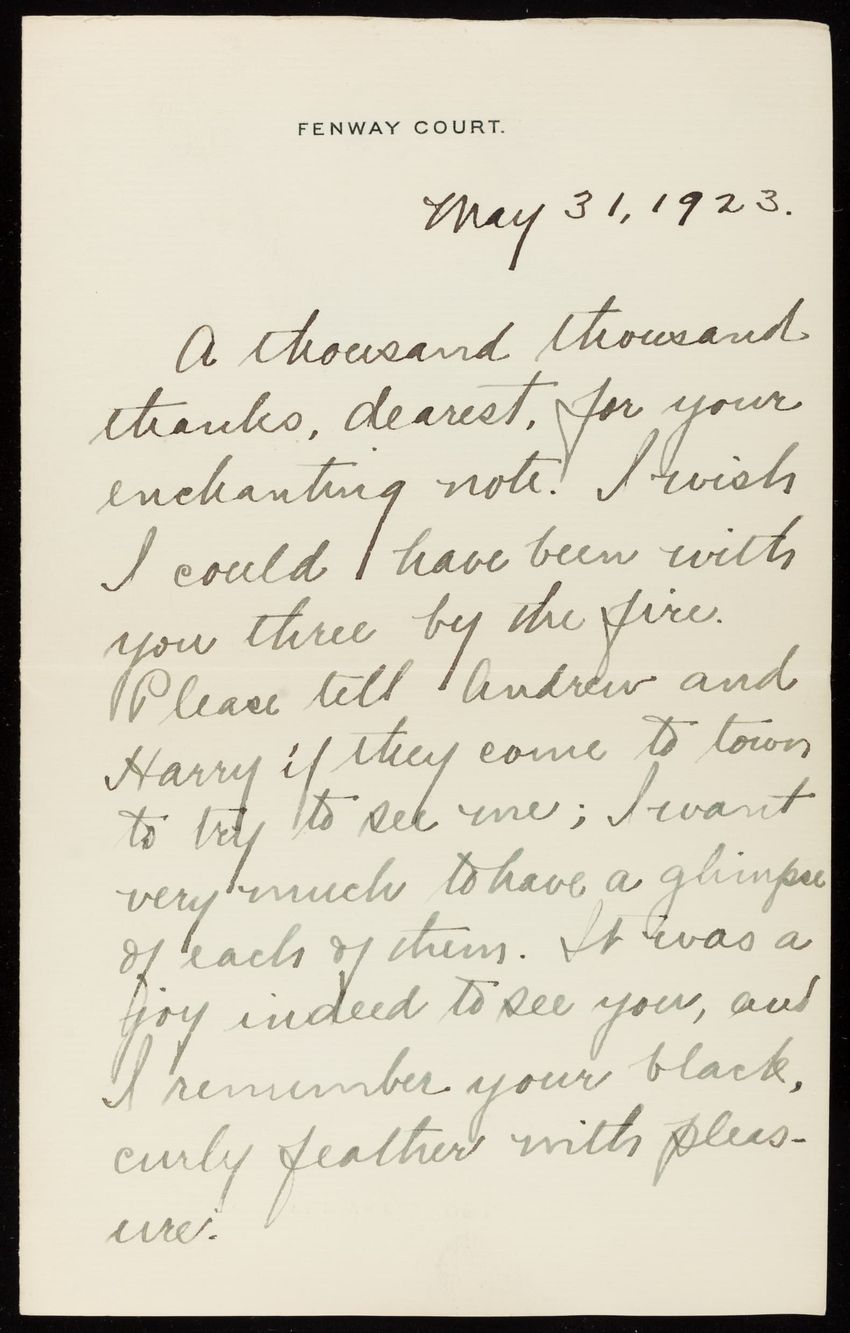 FENWAY COURT.
May 31, 1923.
A thousand thousand
thanks, dearest, for your
enchanting note. I wish
I could have been with
you three by the fire.
Please tell Andrew and
Harry if they come to town
to try to see me; I want
very much to have a glimpse
of each of them. It was a
joy indeed to see you, and
I remember your black,
curly feather with pleas-
ure.